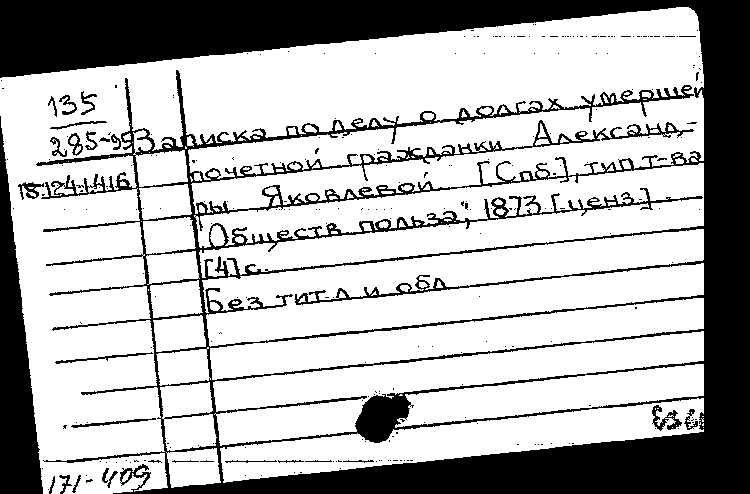 135
285-95 Записка по делу о долгах умершей
почетной гражданки Александ-
18.124.1.416
ры Яковлевой. [Спб.], тип. т-ва
"Обществ польза", 1873 [ценз.].
[4] с.
Без тит. л и обл
171-409